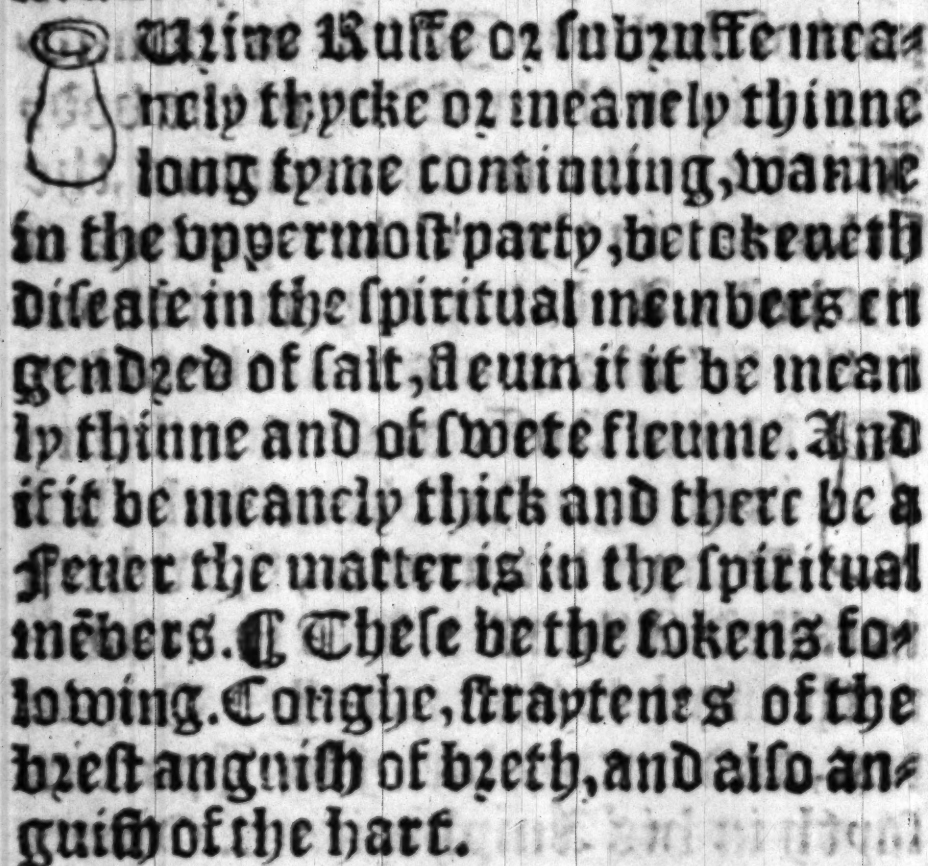 Urine Ruffe or subruffe mea⸗
nely thycke or meanely thinne
long tyme continuing, wanne
in the vppermost party, betokeneth
disease in the spiritual members en
gendred of salt, fleum if it be mean
ly thinne and of swete fleume. And
if it be meanely thick and there be a
Feuer the matter is in the spiritual
mēbers. ¶ These be the tokens fo⸗
lowing. Coughe, straytenes of the
brest anguish of breth, and also an⸗
guish of the hart.